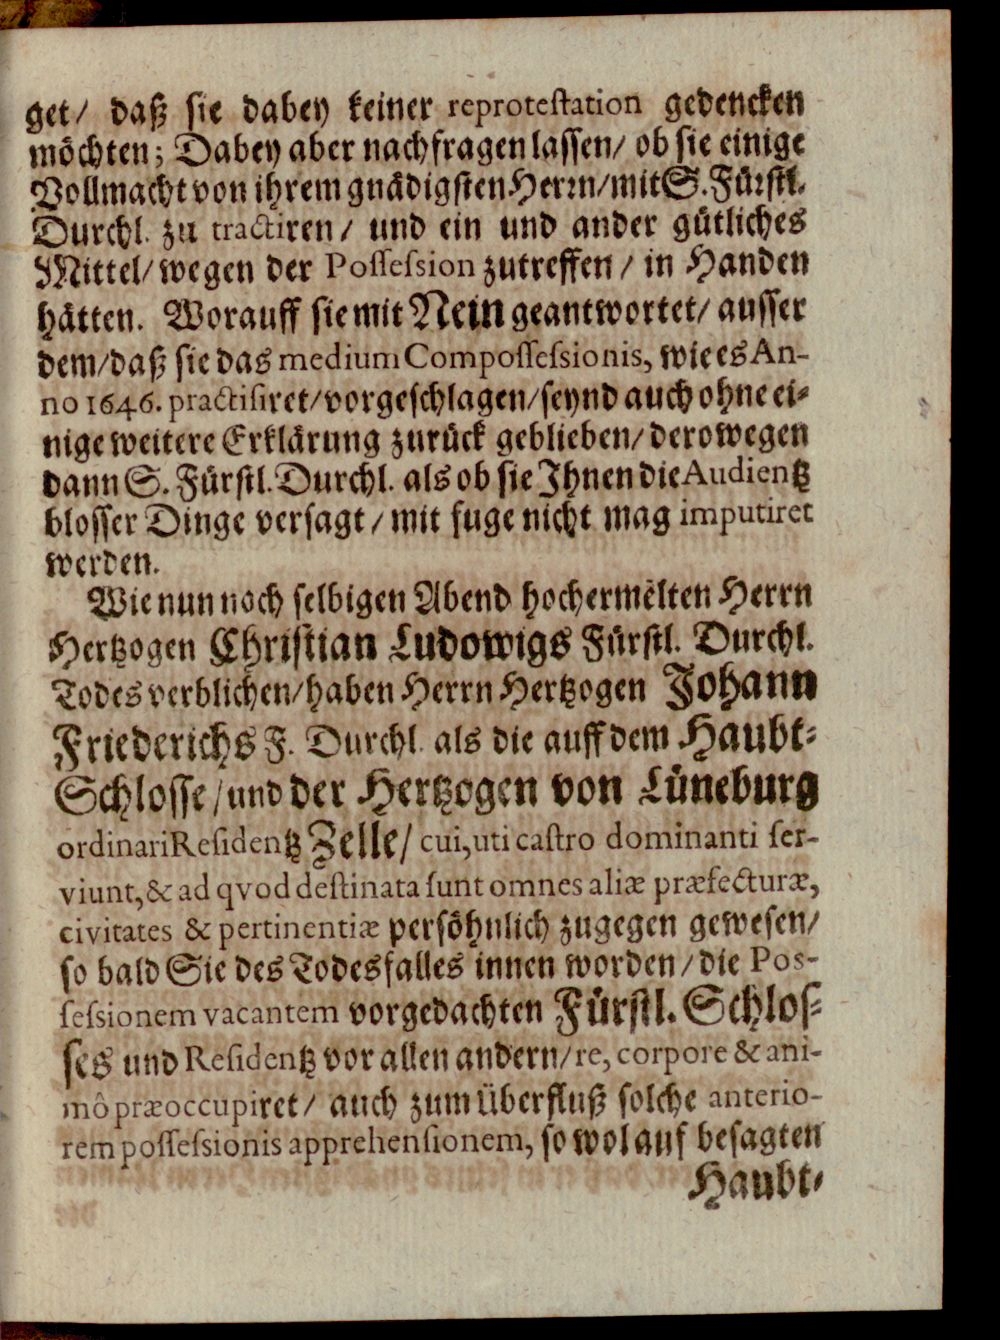 get/ daß sie dabey keiner reprotestation gedencken
möchten; Dabey aber nachfragen lassen/ ob sie einige
Vollmacht von ihrem gnädigsten Herrn/ mit S. Fürstl.
Durchl. zu tractiren/ und ein und ander gütliches
Mittel/ wegen der Possession zutreffen/ in Handen
hätten. Worauff sie mit Nein geantwortet/ ausser
dem/ daß sie das medium Compossessionis, wie es An-
no 1646. practisiret/ vorgeschlagen/ seynd auch ohne ei-
nige weitere Erklärung zurück geblieben/ derowegen
dann S. Fürstl. Durchl. als ob sie Ihnen die Audientz
blosser Dinge versagt/ mit fuge nicht mag imputiret
werden.
Wie nun noch selbigen Abend hochermelten Herrn
Hertzogen Christian Ludowigs Fürstl. Durchl.
Todes verblichen/ haben Herrn Hertzogen Johann
Friederichs F. Durchl. als die auff dem Haubt-
Schlosse/ und der Hertzogen von Lüneburg
ordinari Residentz Zelle/ cui, uti castro dominanti ser-
viunt, & ad qvod destinata sunt omnes aliæ præfecturæ,
civitates & pertinentiæ persöhnlich zugegen gewesen/
so bald Sie des Todesfalles innen worden/ die Pos-
sessionem vacantem vorgedachten Fürstl. Schlos-
ses und Residentz vor allen andern/ re, corpore & ani-
mô præoccupiret/ auch zum Überfluß solche anterio-
rem possessionis apprehensionem, so wol auf besagten
Haubt-